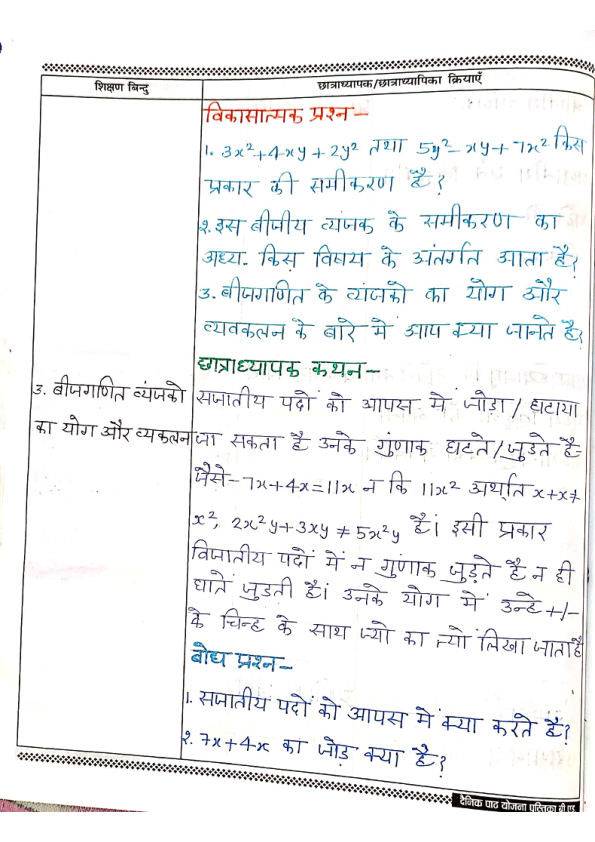 शिक्षण बिन्दु
छात्राध्यापक/छात्राध्यापिका क्रियाएँ
विकासात्मक प्रश्न-
1. 3x²+4xy+2y² तथा 5y²-xy+7x² किस
प्रकार की समीकरण है?
2. इस बीजीय व्यंजक के समीकरण का
अध्य. किस विषय के अंतर्गत आता है?
3. बीजगणित के व्यंजको का योग और
व्यवकलन के बारे में आप क्या जानते है?
छात्राध्यापक कथन-
3. बीजगणित व्यंजको
का योग और व्यकलन
सजातीय पदों को आपस में जोडा/घटाया
जा सकता है उनके गुंणाक घटते/जुडते है-
जैसे- 7x+4x=11x न कि 11x² अर्थात x+x≠
x², 2x²y+3xy≠5x²y है। इसी प्रकार
विजातीय पदों में न गुंणाक जुड़ते है न ही
घातें जुडती है। उनके योग में उन्हे +/-
के चिन्ह के साथ ज्यो का त्यों लिखा जाता है
बोध प्रश्न-
1. सजातीय पदों को आपस में क्या करते है?
2. 7x+4x का जोड़ क्या है?
दैनिक पाठ योजना पुस्तिका बी.एड.